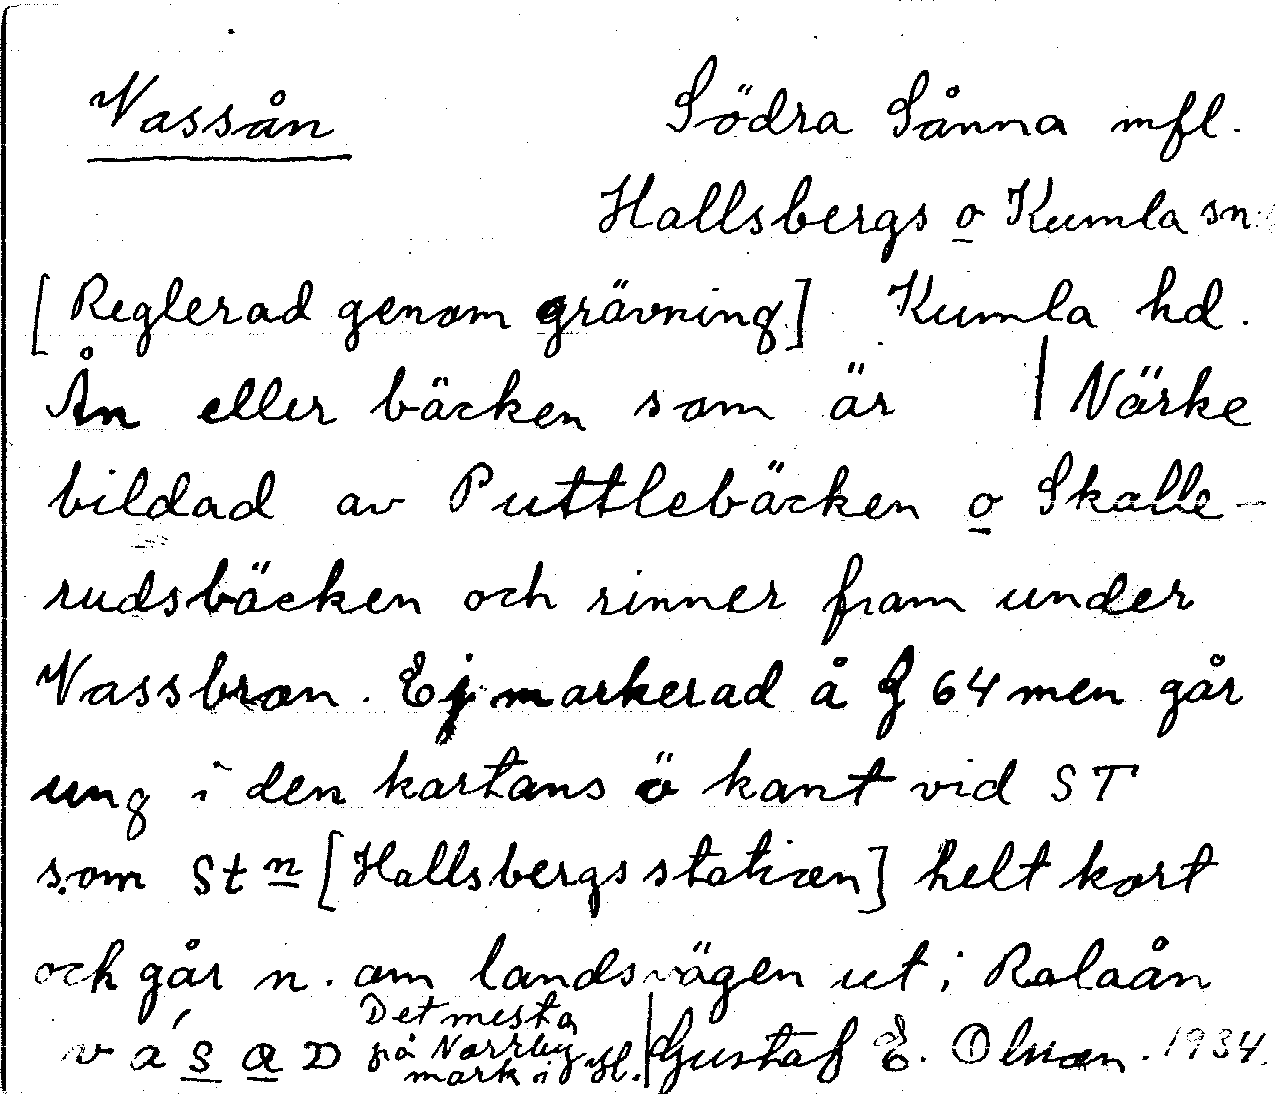 Vassån
Södra Sånna mfl.
Hallsbergs o Kumla sn.
[Reglerad genom grävning] Kumla hd.
Ån eller bäcken som är | Närke
bildad av Puttlebäcken o Skalle-
rudsbäcken och rinner fram under
Vassbron. Ej markerad å G 64 men går
ung i den kartans ö kant vid ST
som Stn [Hallsbergs station] helt kort
och går n. om landsvägen ut i Ralaån
Det mesta
på Norrby
mark i H.
Gustaf E. Olson. 1934.